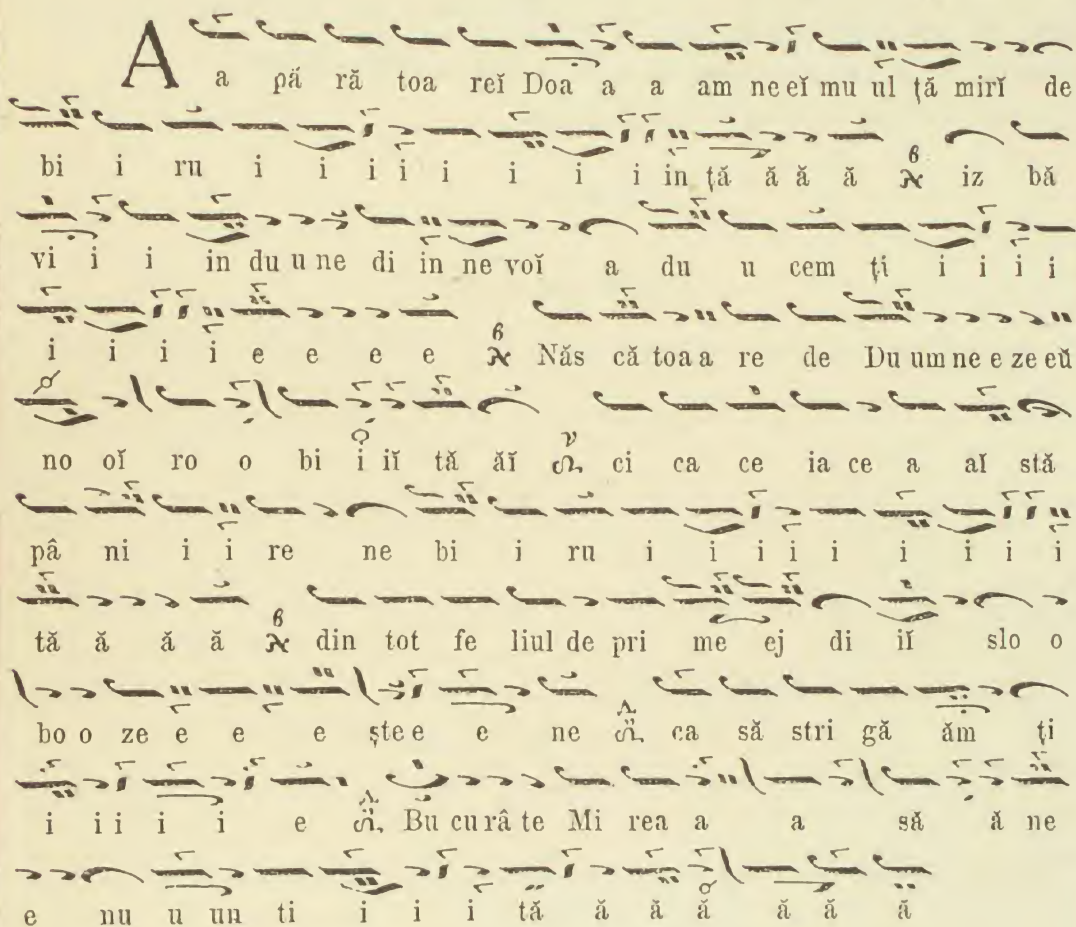 A a pă ră toa reĭ Doa a a am ne eĭ mu ul ţă mirĭ de
bi i ru i i i i i i i i in ţă ă ă ă iz bă
vi i i in du u ne di in ne voĭ a du u cem ţi i i i i
i i i i e e e e Năs că toa a re de Du um ne e ze eŭ
no oĭ ro o bi i iĭ tă ăĭ ci ca ce ia ce a aĭ stă
pâ ni i i re ne bi i ru i i i i i i i i i
tă ă ă ă din tot fe liul de pri me ej di iĭ slo o
bo o ze e e e şte e e ne ca să stri gă ăm ţi
i i i i i e Bu cu râ te Mi rea a a să ă ne
e nu u un ti i i i tă ă ă ă ă ă ă